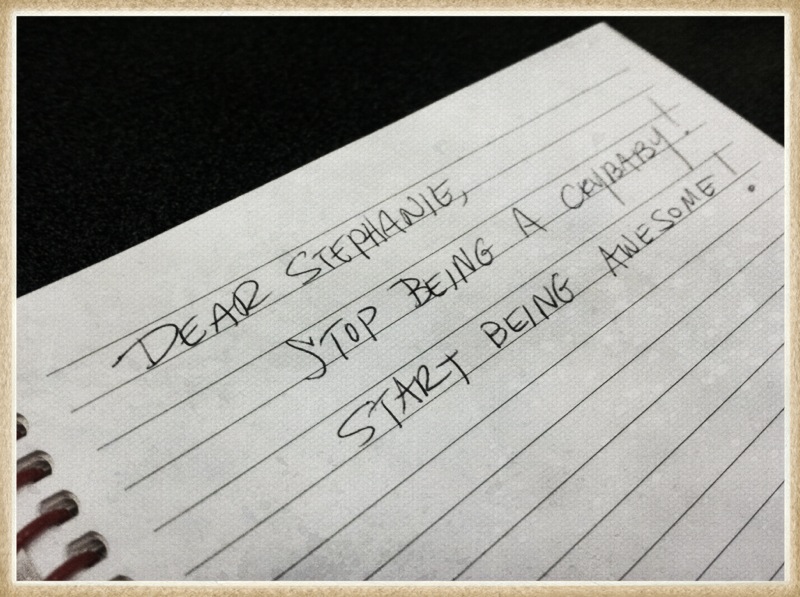 DEAR STEPHANIE,
STOP BEING A CRYBABY!
START BEING AWESOME!